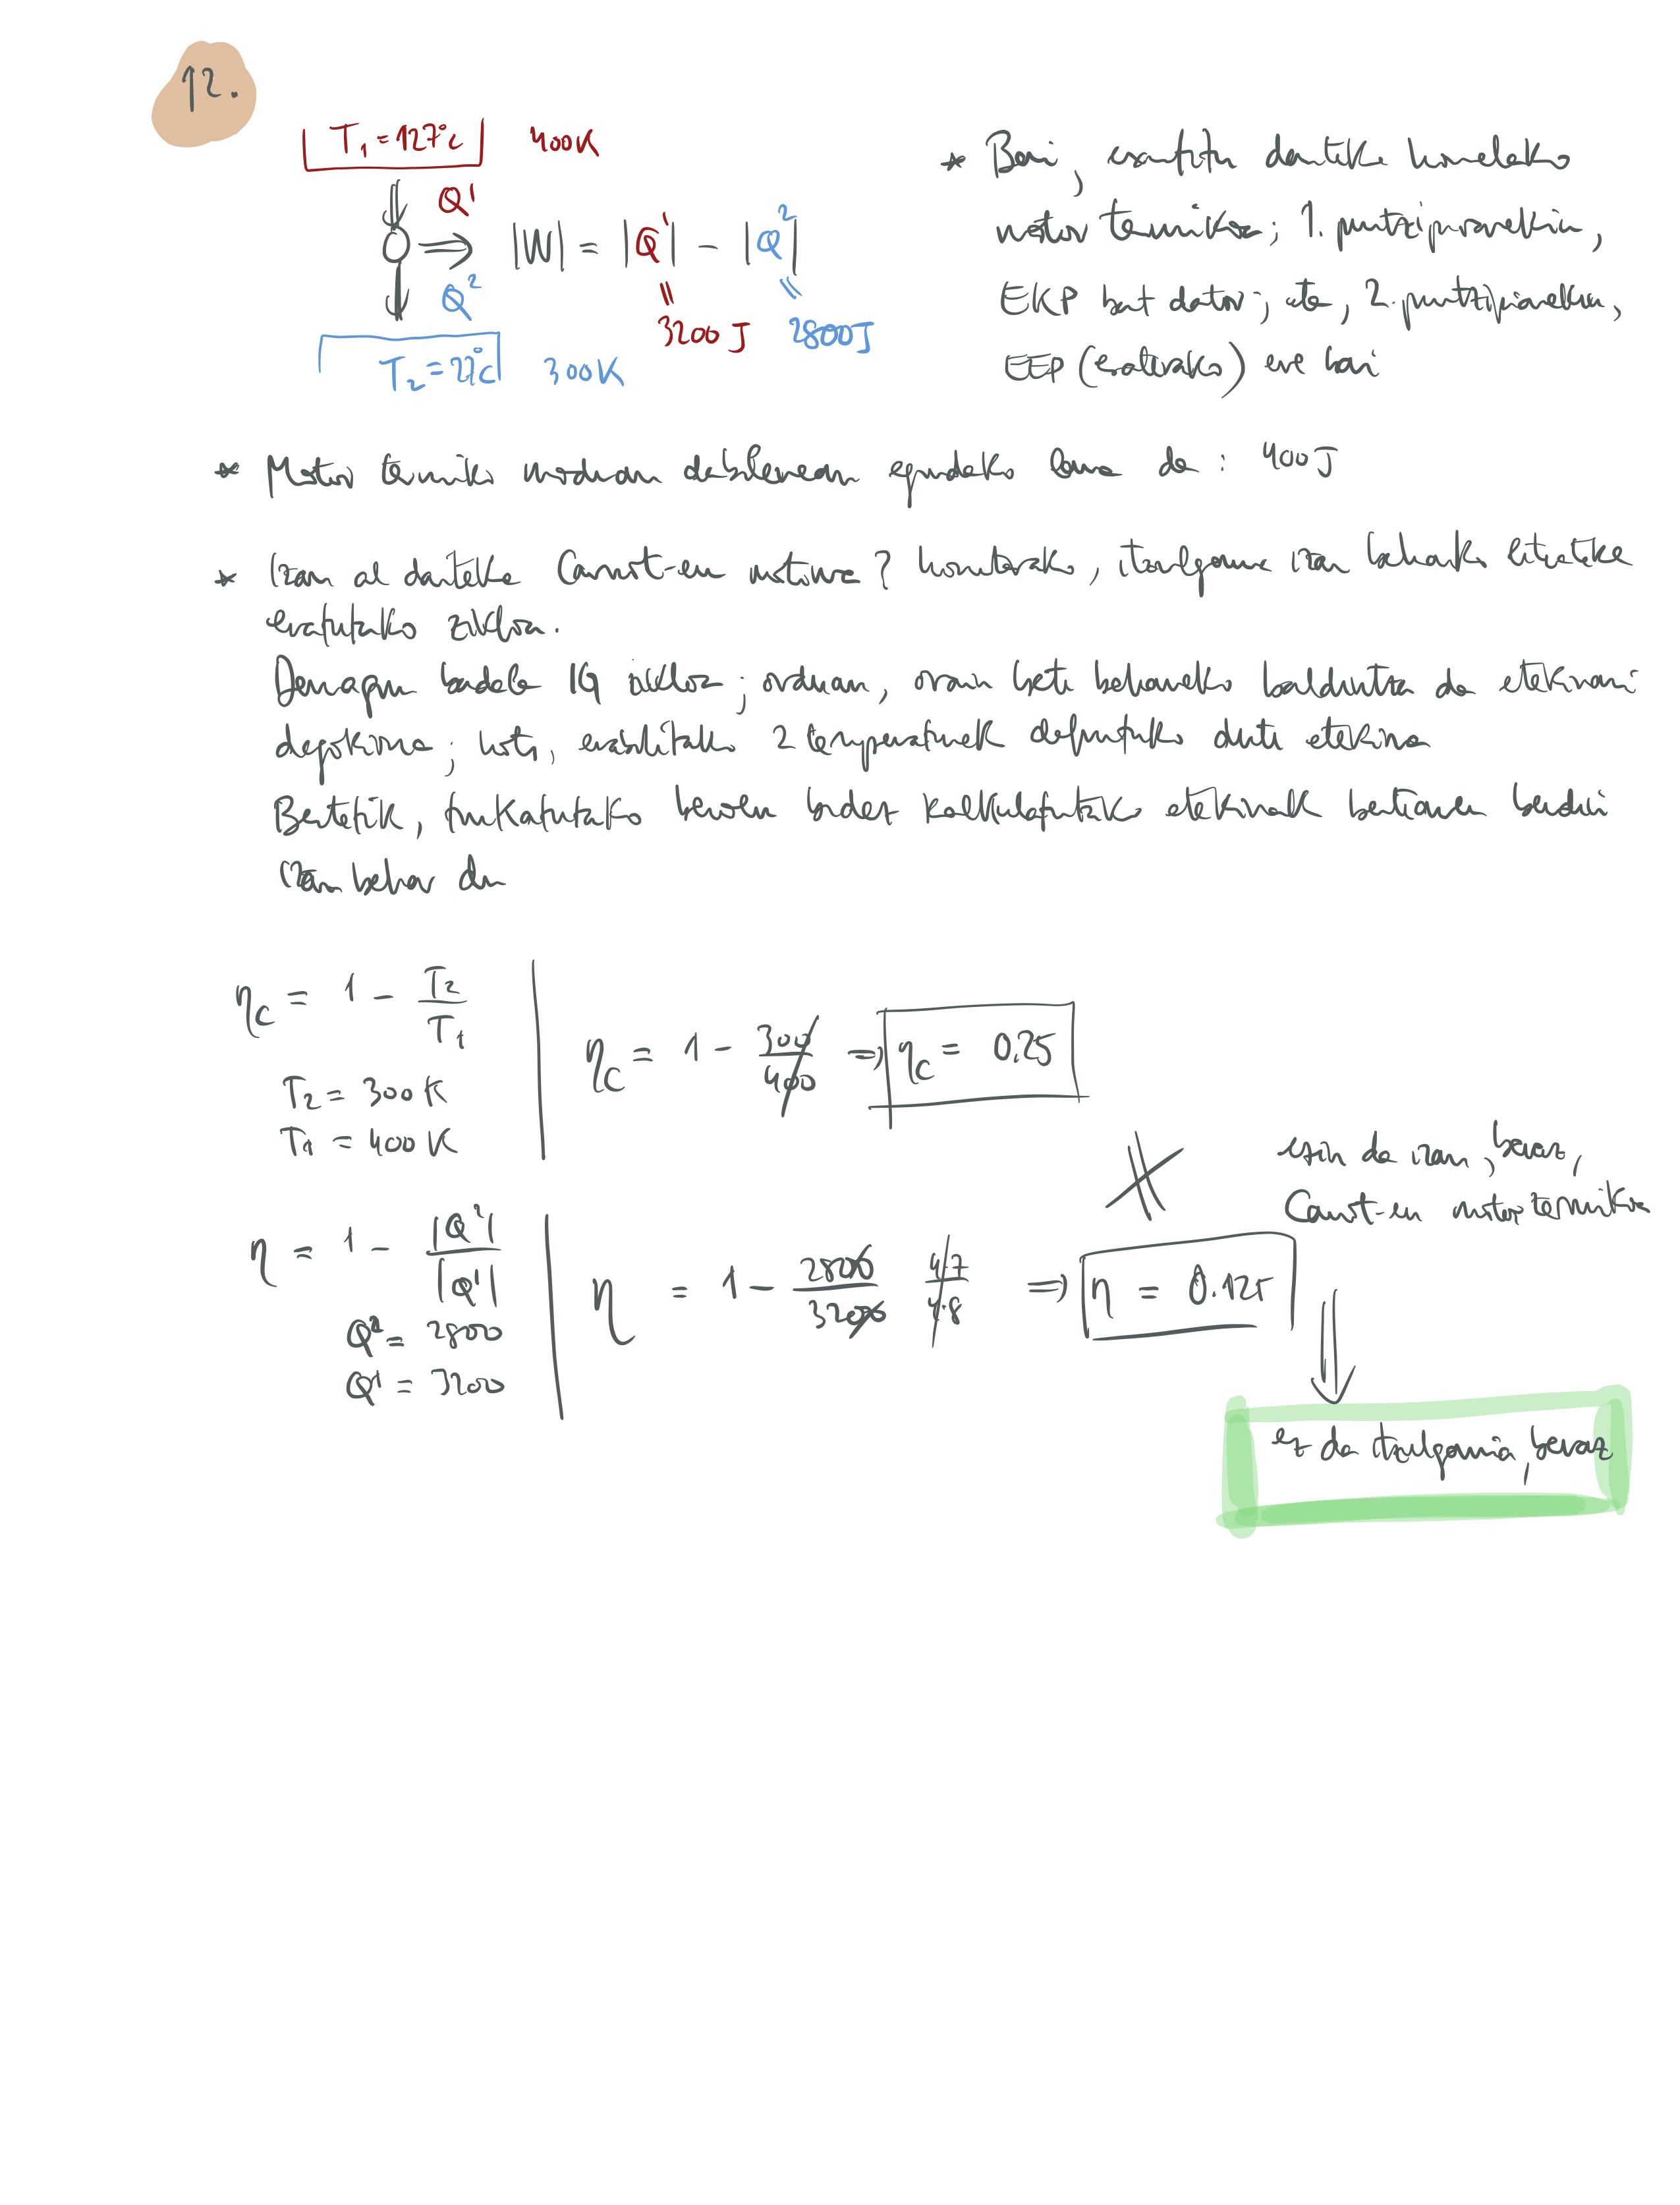 12.
T₁ = 127°C 400K
Q¹
|W| = |Q¹| - |Q²|
Q²
3200 J 2800 J
T₂ = 27°C 300K
* Bai, eraiki daiteke honelako
motor termikoa; 1. printzipioarekin,
EKP bat dator; eta, 2. printzipioarekin,
EEP (eratorrako) ere bai
* Motor termiko moduan dabilenean egindako lana da : 400 J
* Izan al daiteke Carnot-en motorra? horretarako, itzulgarria izan beharko litzateke
eratutako zikloa.
Demagun badela IG zikloa; orduan, orain bete beharreko baldintza da etekinari
dagokiona; hots, erabilitako 2 temperaturek definituko dute etekina
Bestetik, trukatutako beroen bidez kalkulatutako etekinak berdina
izan behar du
η_C = 1 - T₂/T₁
T₂ = 300 K
T₁ = 400 K
η_C = 1 - 300/400 ⇒ η_C = 0.25
ezin da izan, beraz,
Carnot-en motor termikoa
η = 1 - |Q²|/|Q¹|
Q² = 2800
Q¹ = 3200
η = 1 - 2800/3200 4·7/4·8 ⇒ η = 0.125
ez da itzulgarria, beraz